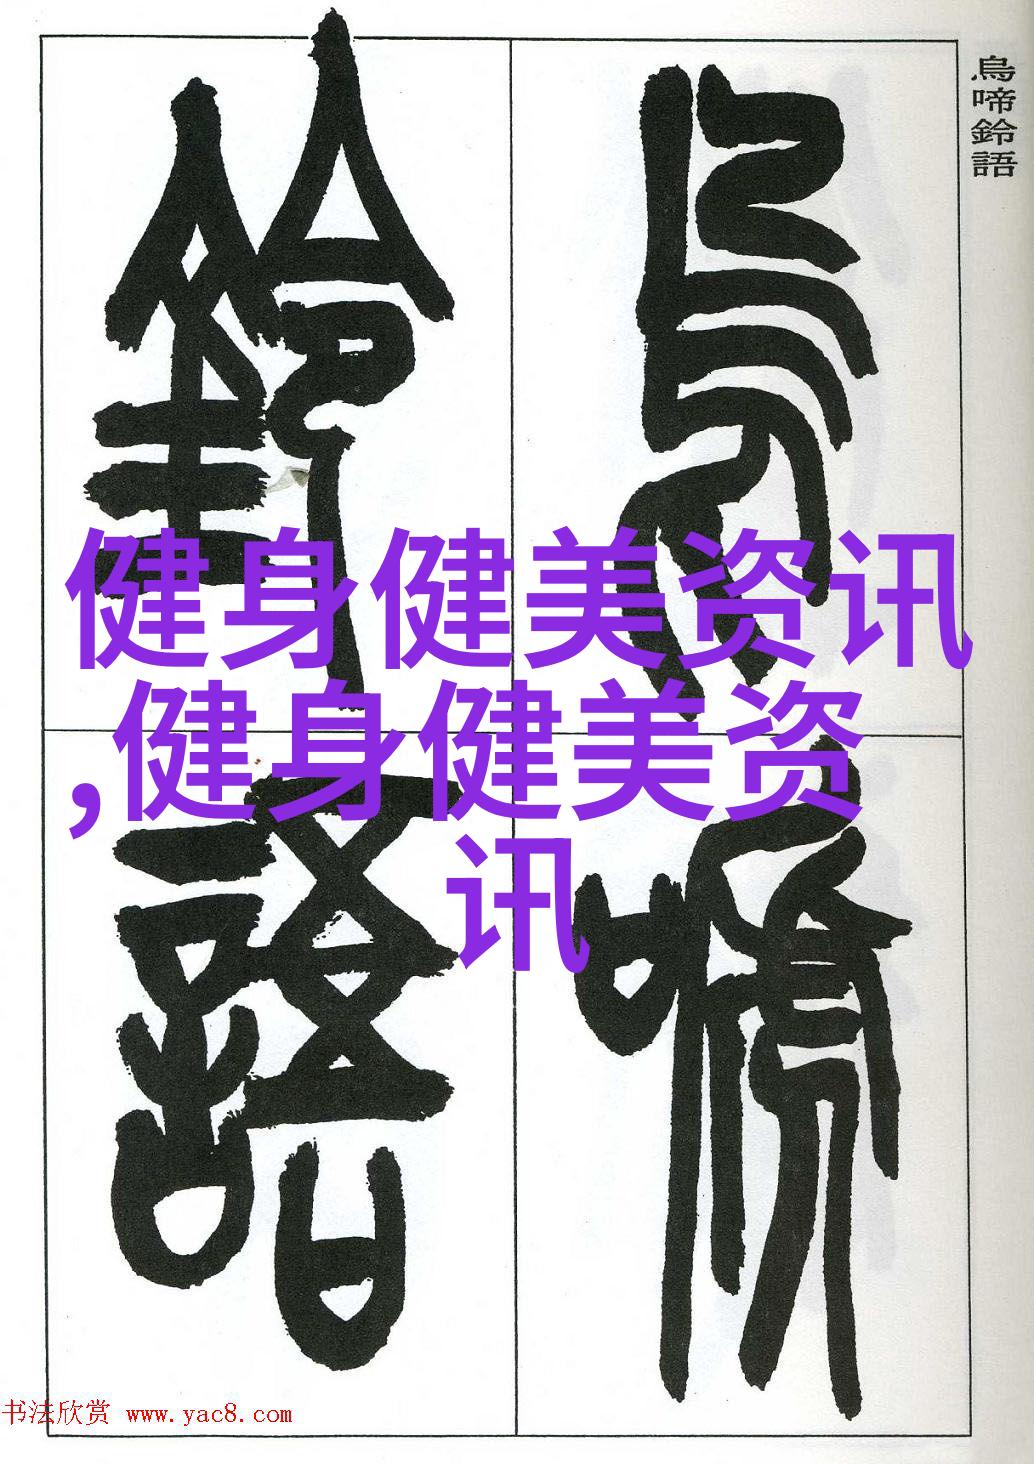 烏啼
鈴語
烏啼鈴語
健身健美资讯
,健身健美资
讯
书法欣赏 www.yac8.com